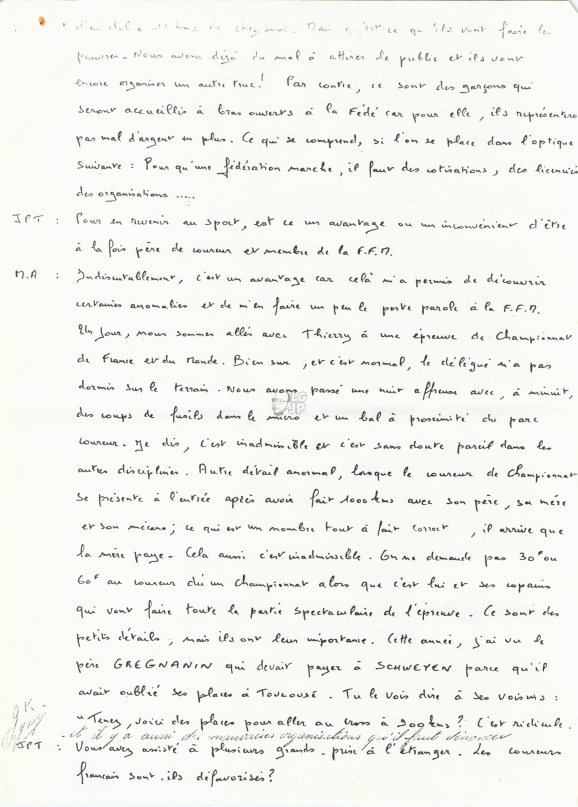 de chez moi. Mais qu'est ce qu'ils vont faire les
pauvres. Nous avons déjà du mal à attirer le public et ils vont
encore organiser un autre truc! Par contre, ce sont des garçons qui
seront accueillis à bras ouverts à la Fédé car pour elle, ils représentero
pas mal d'argent en plus. Ce qui se comprend, si l'on se place dans l'optique
suivante : Pour qu'une fédération marche, il faut des cotisations, des licencié
des organisations .....
JPT : Pour en revenir au sport, est ce un avantage ou un inconvénient d'être
à la fois père de coureur et membre de la F.F.M.
M.A : Indiscutablement, c'est un avantage car celà m'a permis de découvrir
certaines anomalies et de m'en faire un peu le porte parole à la F.F.M.
Un jour, nous sommes allés avec Thierry à une épreuve de Championnat
de France et du Monde. Bien sur, et c'est normal, le délégué n'a pas
dormis sur le terrain. Nous avons passé une nuit affreuse avec, à minuit,
des coups de fusils dans le micro et un bal à proximité du parc
coureur. Je dis, c'est inadmissible et c'est sans doute pareil dans les
autres disciplines. Autre détail anormal, lorsque le coureur de Championnat
se présente à l'entrée après avoir fait 1000 kms avec son père, sa mère
et son mécano; ce qui est un nombre tout à fait correct , il arrive que
la mère paye. Cela aussi c'est inadmissible. On ne demande pas 30F ou
60F au coureur d'un Championnat alors que c'est lui et ses copains
qui vont faire toute la partie spectaculaire de l'épreuve. Ce sont des
petits détails, mais ils ont leur importance. Cette année, j'ai vu le
père GREGNANIN qui devait payer à SCHWEYEN parce qu'il
avait oublié ses places à TOULOUSE. Tu le vois dire à ses voisins :
"Tenez, voici des places pour aller au cross à 900 kms? C'est ridicule.
et il y a aussi des mauvaises organisations qu'il faut dénoncer
JPT : Vous avez assisté à plusieurs grands-prix à l'étranger. Les coureurs
français sont-ils défavorisés?